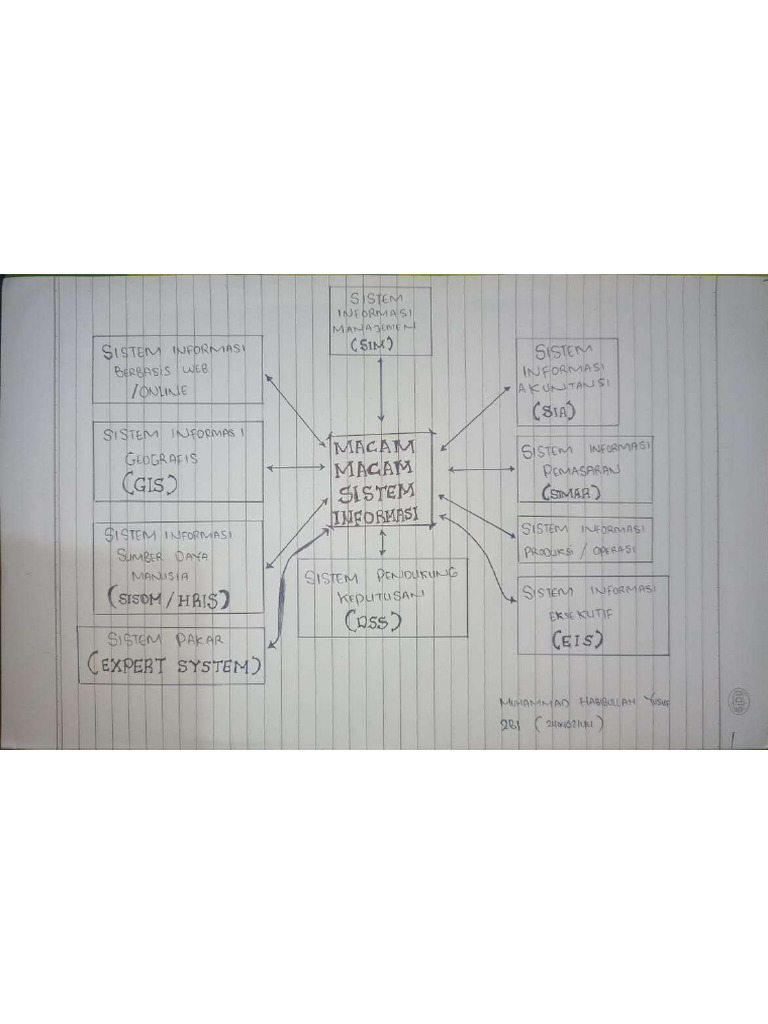 SISTEM
INFORMASI
MANAJEMEN
(SIM)
SISTEM INFORMASI
BERBASIS WEB
/ONLINE
SISTEM INFORMASI
GEOGRAFIS
(GIS)
SISTEM INFORMASI
SUMBER DAYA
MANUSIA
(SISDM/HRIS)
SISTEM PAKAR
(EXPERT SYSTEM)
MACAM
MACAM
SISTEM
INFORMASI
SISTEM PENDUKUNG
KEPUTUSAN
(DSS)
SISTEM
INFORMASI
AKUNTANSI
(SIA)
SISTEM INFORMASI
PEMASARAN
(SIMAR)
SISTEM INFORMASI
PRODUKSI / OPERASI
SISTEM INFORMASI
EKSEKUTIF
(EIS)
MUHAMMAD HABIBULLAH YUSUF
2G1
SIDU
1